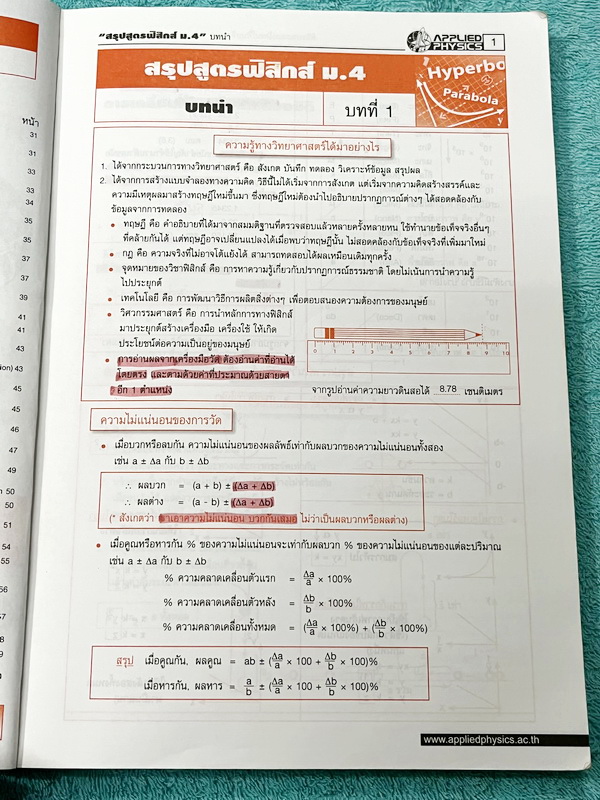 "สรุปสูตรฟิสิกส์ ม.4" บทนำ
APPLIED PHYSICS
1
สรุปสูตรฟิสิกส์ ม.4
บทนำ
บทที่ 1
Hyperbo
Parabola
y
x
ความรู้ทางวิทยาศาสตร์ได้มาอย่างไร
1. ได้จากกระบวนการทางวิทยาศาสตร์ คือ สังเกต บันทึก ทดลอง วิเคราะห์ข้อมูล สรุปผล
2. ได้จากการสร้างแบบจำลองทางความคิด วิธีนี้ไม่ได้เริ่มจากการสังเกต แต่เริ่มจากความคิดสร้างสรรค์และ
ความมีเหตุผลมาสร้างทฤษฎีใหม่ขึ้นมา ซึ่งทฤษฎีใหม่ต้องนำไปอธิบายปรากฏการณ์ต่างๆ ได้สอดคล้องกับ
ข้อมูลจากการทดลอง
• ทฤษฎี คือ คำอธิบายที่ได้มาจากสมมติฐานที่ตรวจสอบแล้วหลายครั้งหลายหน ใช้ทำนายข้อเท็จจริงอื่นๆ
ที่คล้ายกันได้ แต่ทฤษฎีอาจเปลี่ยนแปลงได้เมื่อพบว่าทฤษฎีนั้น ไม่สอดคล้องกับข้อเท็จจริงที่เพิ่มมาใหม่
• กฎ คือ ความจริงที่ไม่อาจโต้แย้งได้ สามารถทดสอบได้ผลเหมือนเดิมทุกครั้ง
• จุดหมายของวิชาฟิสิกส์ คือ การหาความรู้เกี่ยวกับปรากฏการณ์ธรรมชาติ โดยไม่เน้นการนำความรู้
ไปประยุกต์
• เทคโนโลยี คือ การพัฒนาวิธีการผลิตสิ่งต่างๆ เพื่อตอบสนองความต้องการของมนุษย์
• วิศวกรรมศาสตร์ คือ การนำหลักการทางฟิสิกส์
มาประยุกต์สร้างเครื่องมือ เครื่องใช้ ให้เกิด
ประโยชน์ต่อความเป็นอยู่ของมนุษย์
• การอ่านผลจากเครื่องมือวัด ต้องอ่านค่าที่อ่านได้
โดยตรง และตามด้วยค่าที่ประมาณด้วยสายตา
อีก 1 ตำแหน่ง
0 1 2 3 4 5 6 7 8 9 10
จากรูปอ่านค่าความยาวดินสอได้ 8.78 เซนติเมตร
ความไม่แน่นอนของการวัด
• เมื่อบวกหรือลบกัน ความไม่แน่นอนของผลลัพธ์เท่ากับผลบวกของความไม่แน่นอนทั้งสอง
เช่น a ± Δa กับ b ± Δb
∴ ผลบวก = (a + b) ± (Δa + Δb)
∴ ผลต่าง = (a - b) ± (Δa + Δb)
(* สังเกตว่า เอาความไม่แน่นอน บวกกันเสมอ ไม่ว่าเป็นผลบวกหรือผลต่าง)
• เมื่อคูณหรือหารกัน % ของความไม่แน่นอนจะเท่ากับผลบวก % ของความไม่แน่นอนของแต่ละปริมาณ
เช่น a ± Δa กับ b ± Δb
% ความคลาดเคลื่อนตัวแรก = Δa/a × 100%
% ความคลาดเคลื่อนตัวหลัง = Δb/b × 100%
% ความคลาดเคลื่อนทั้งหมด = (Δa/a × 100%) + (Δb/b × 100%)
สรุป เมื่อคูณกัน, ผลคูณ = ab ± (Δa/a × 100 + Δb/b × 100)%
เมื่อหารกัน, ผลหาร = a/b ± (Δa/a × 100 + Δb/b × 100)%
www.appliedphysics.ac.th
หน้า
31
31
33
33
34
35
37
37
39
43
45
45
47
49
50
51
54
55